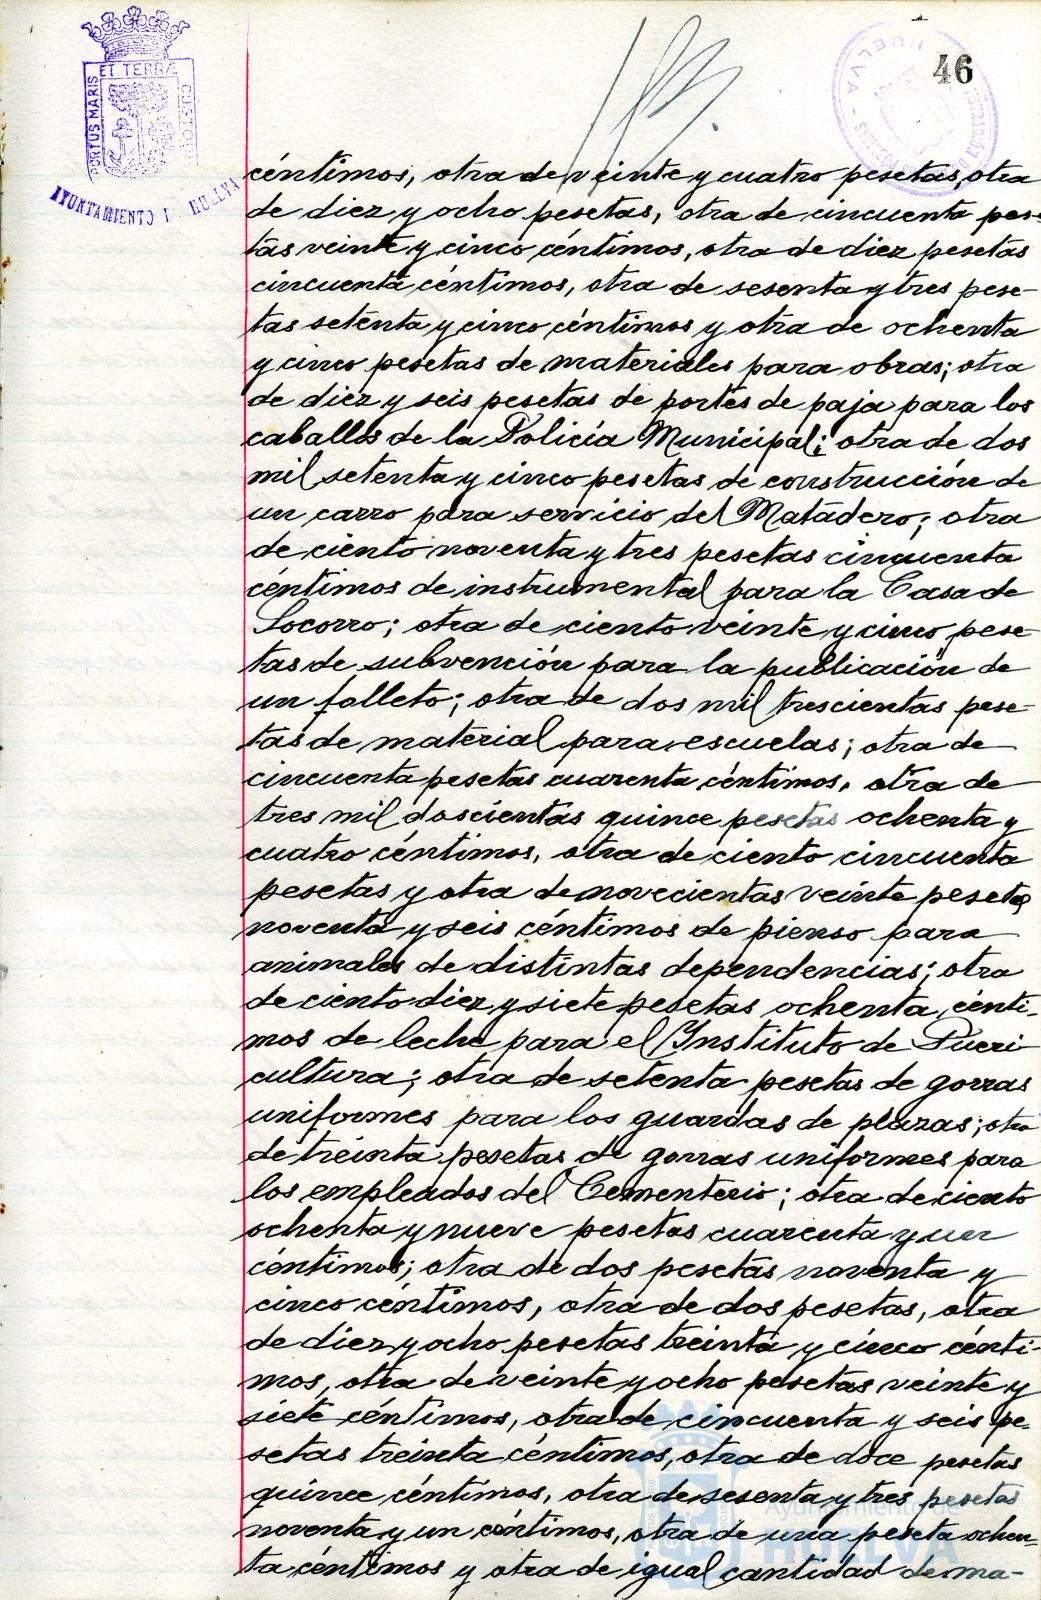 46
PORTUS MARIS ET TERRÆ CUSTODIA
AYUNTAMIENTO DE HUELVA
HUELVA
céntimos, otra de veinte y cuatro pesetas, otra
de diez y ocho pesetas, otra de cincuenta pese-
tas veinte y cinco céntimos, otra de diez pesetas
cincuenta céntimos, otra de sesenta y tres pese-
tas setenta y cinco céntimos y otra de ochenta
y cinco pesetas de materiales para obras; otra
de diez y seis pesetas de portes de paja para los
caballos de la Policía Municipal; otra de dos
mil setenta y cinco pesetas de construcción de
un carro para servicio del Matadero; otra
de ciento noventa y tres pesetas cincuenta
céntimos de instrumental para la Casa de
Socorro; otra de ciento veinte y cinco pese-
tas de subvención para la publicación de
un folleto; otra de dos mil trescientas pese-
tas de material para escuelas; otra de
cincuenta pesetas cuarenta céntimos, otra de
tres mil doscientas quince pesetas ochenta y
cuatro céntimos, otra de ciento cincuenta
pesetas y otra de novecientas veinte pesetas
noventa y seis céntimos de pienso para
animales de distintas dependencias; otra
de ciento diez y siete pesetas ochenta cénti-
mos de leche para el Instituto de Pueri
cultura; otra de setenta pesetas de gorras
uniformes para los guardas de plazas; otra
de treinta pesetas de gorras uniformes para
los empleados del Cementerio; otra de ciento
ochenta y nueve pesetas cuarenta y un
céntimos; otra de dos pesetas noventa y
cinco céntimos, otra de dos pesetas, otra
de diez y ocho pesetas treinta y cinco cénti-
mos, otra de veinte y ocho pesetas veinte y
siete céntimos, otra de cincuenta y seis pe-
setas treinta céntimos, otra de doce pesetas
quince céntimos, otra de sesenta y tres pesetas
noventa y un céntimos, otra de una peseta ochen-
ta céntimos y otra de igual cantidad de ma-
Ayuntamiento de
HUELVA